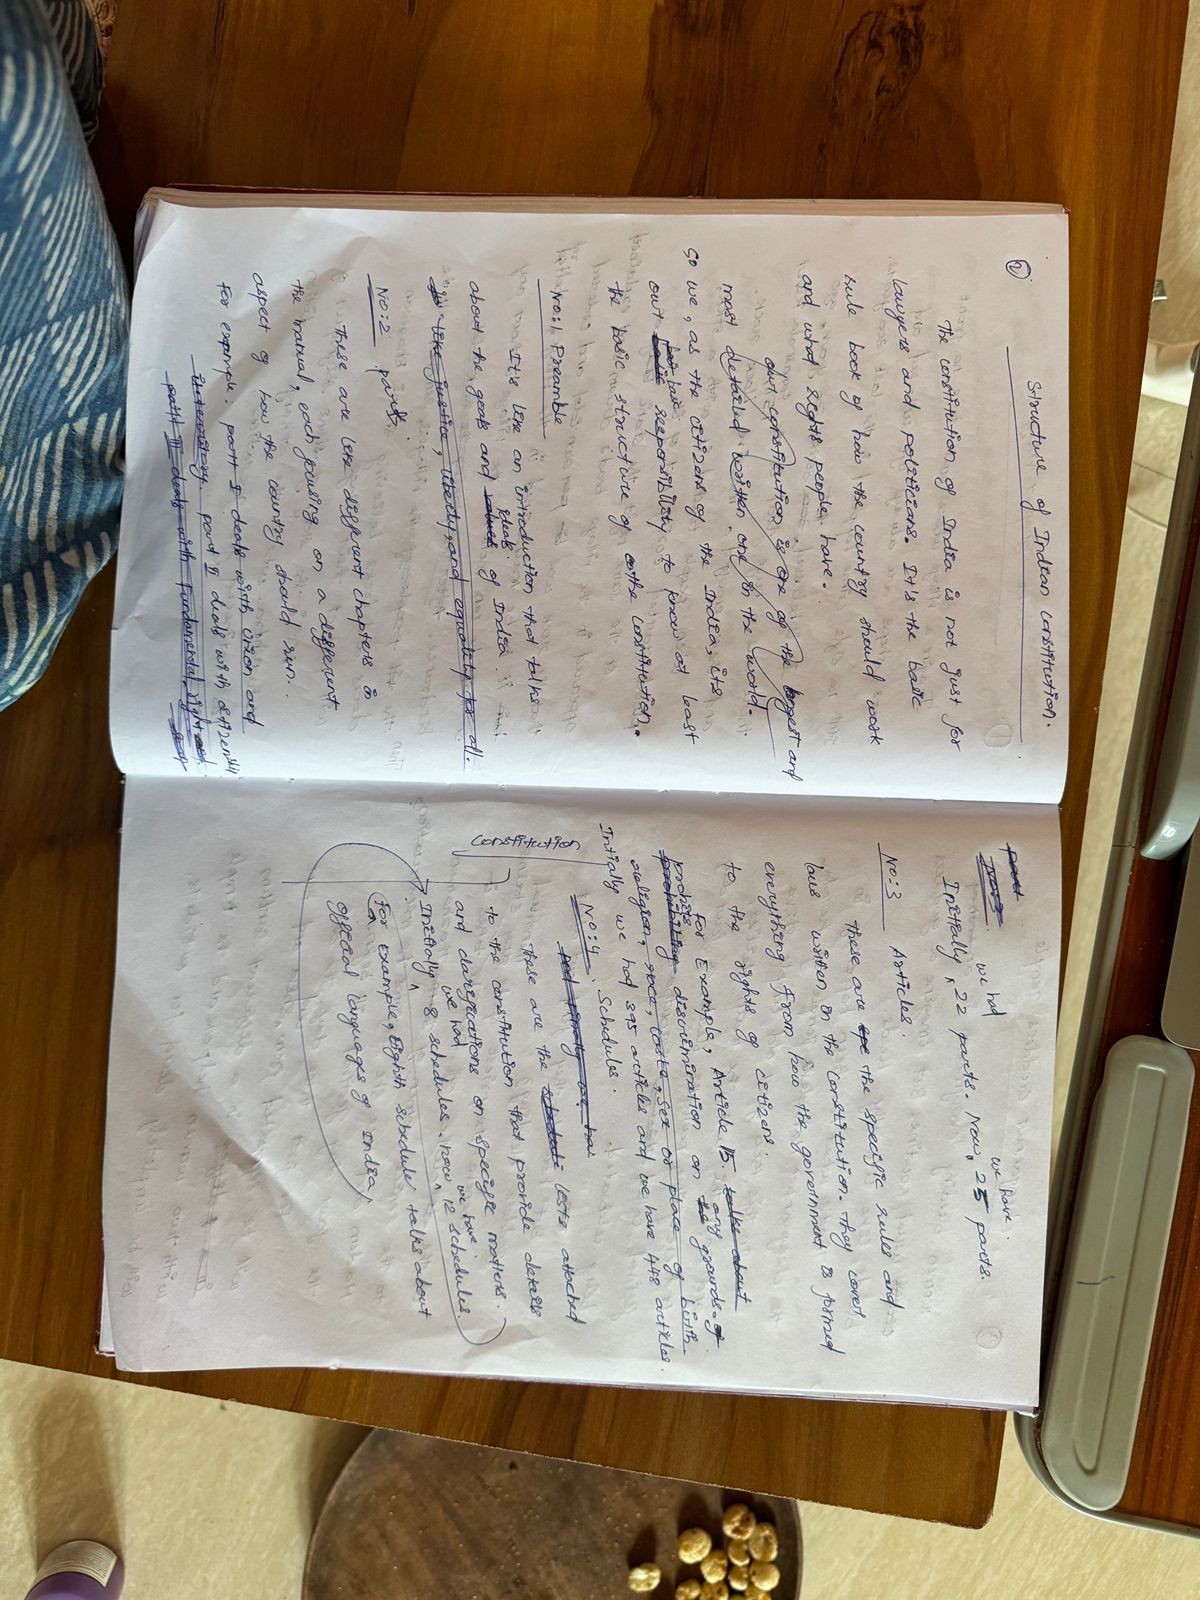 2
Structure of Indian constitution.
The constitution of India is not just for
lawyers and politicians. It's the basic
rule book of how the country should work
and what rights people have.
our constitution is one of the longest and
most detailed written one in the world.
So we, as the citizens of the India, its
our responsibility to know at least
the basic structure of the constitution.
No:1 Preamble
It's like an introduction that talks
about the goals and values ideals of India.
like justice, liberty, and equality for all.
No:2 parts.
These are like different chapters in
the manual, each focusing on a different
aspect of how the country should run.
For example. part I deals with Union and
its territory part II deals with citizenship
part III deals with Fundamental rights
Initially we had 22 parts. Now, we have 25 parts.
No:3 Articles
These are the specific rules and
laws written in the constitution. They cover
everything from how the government is formed
to the rights of citizens.
For Example, Article 15 talks about
prohibits prohibiting discrimination on any grounds of
religion, race, caste, sex or place of birth.
Intially we had 395 articles and we have 448 articles.
No:4 Schedules.
These are the lists attached
to the constitution that provide details
and clarifications on specific matters.
Constitution
Initially we had 8 schedules. now we have 12 schedules.
For example, Eighth schedule talks about
official languages of India,